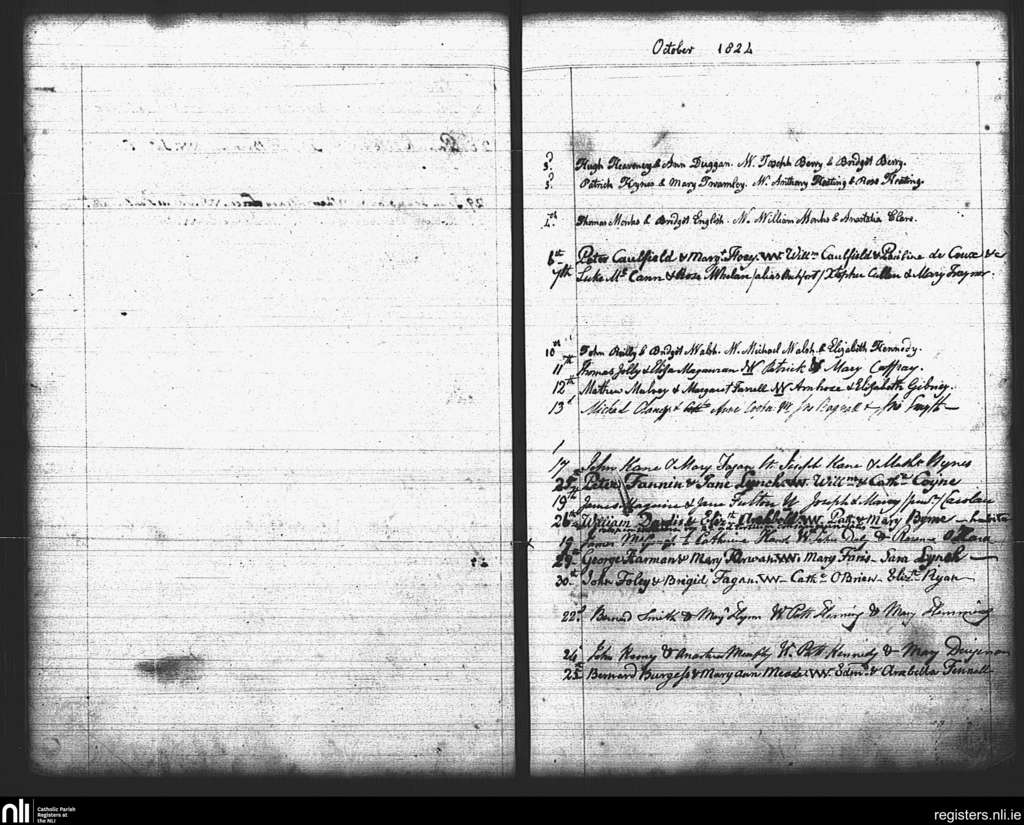 October 1824
3d Hugh Heaveney & Ann Duggan. W. Joseph Berry & Bridget Berry.
3d Patrick Hynes & Mary Twamley. W. Anthony Keating & Rose Keating.
4th Thomas Monks & Bridget English. W. William Monks & Anastatia Clere.
6th Peter Caulfield & Margt Hoey. WW. Willm Caulfield & Pauline de Coux &c
7th Luke Mc Cann & Rose Whelan /alias / Xtopher Cullen & Mary Traynor.
10th John Reilly & Bridget Walsh. W. Michael Walsh & Elizabeth Kennedy.
11th Thomas Jolly & Eliza Magauran W Patrick & Mary Caffray.
12th Mathew Mulvey & Margaret Farrell W Ambrose & Elisabeth Gibney.
13th Michael Clancy & Anne W Jno Bagnall & Jno Smyth
17 John Kane & Mary Fagan W. Joseph Kane & Byrnes
25th Peter Fannin & Jane Lynch. W. Willm & Cathn Coyne
19th James Maguire & Jane Fulton W Joseph & Carolan
26th William & Elizth Archbold. WW. Pat. & Mary Byrne
19 James & Catherine W. John Daly & Rosanna O'Hara
29th George Harman & Mary Kirwan. WW. Mary Faris. Sara Lynch
30th John Foley & Brigid Fagan. WW. Cathe O'Brien. Elizth Ryan
22d Bernard Smith & Mary Flynn W Patt Fleming & Mary Flemming
24 John & Anastasia Murphy W. Patt Kennedy & Mary
25th Bernard Burgess & Mary Ann Meade. WW. Edmd & Arabella Fennell
nli Catholic Parish
Registers at
the NLI
registers.nli.ie